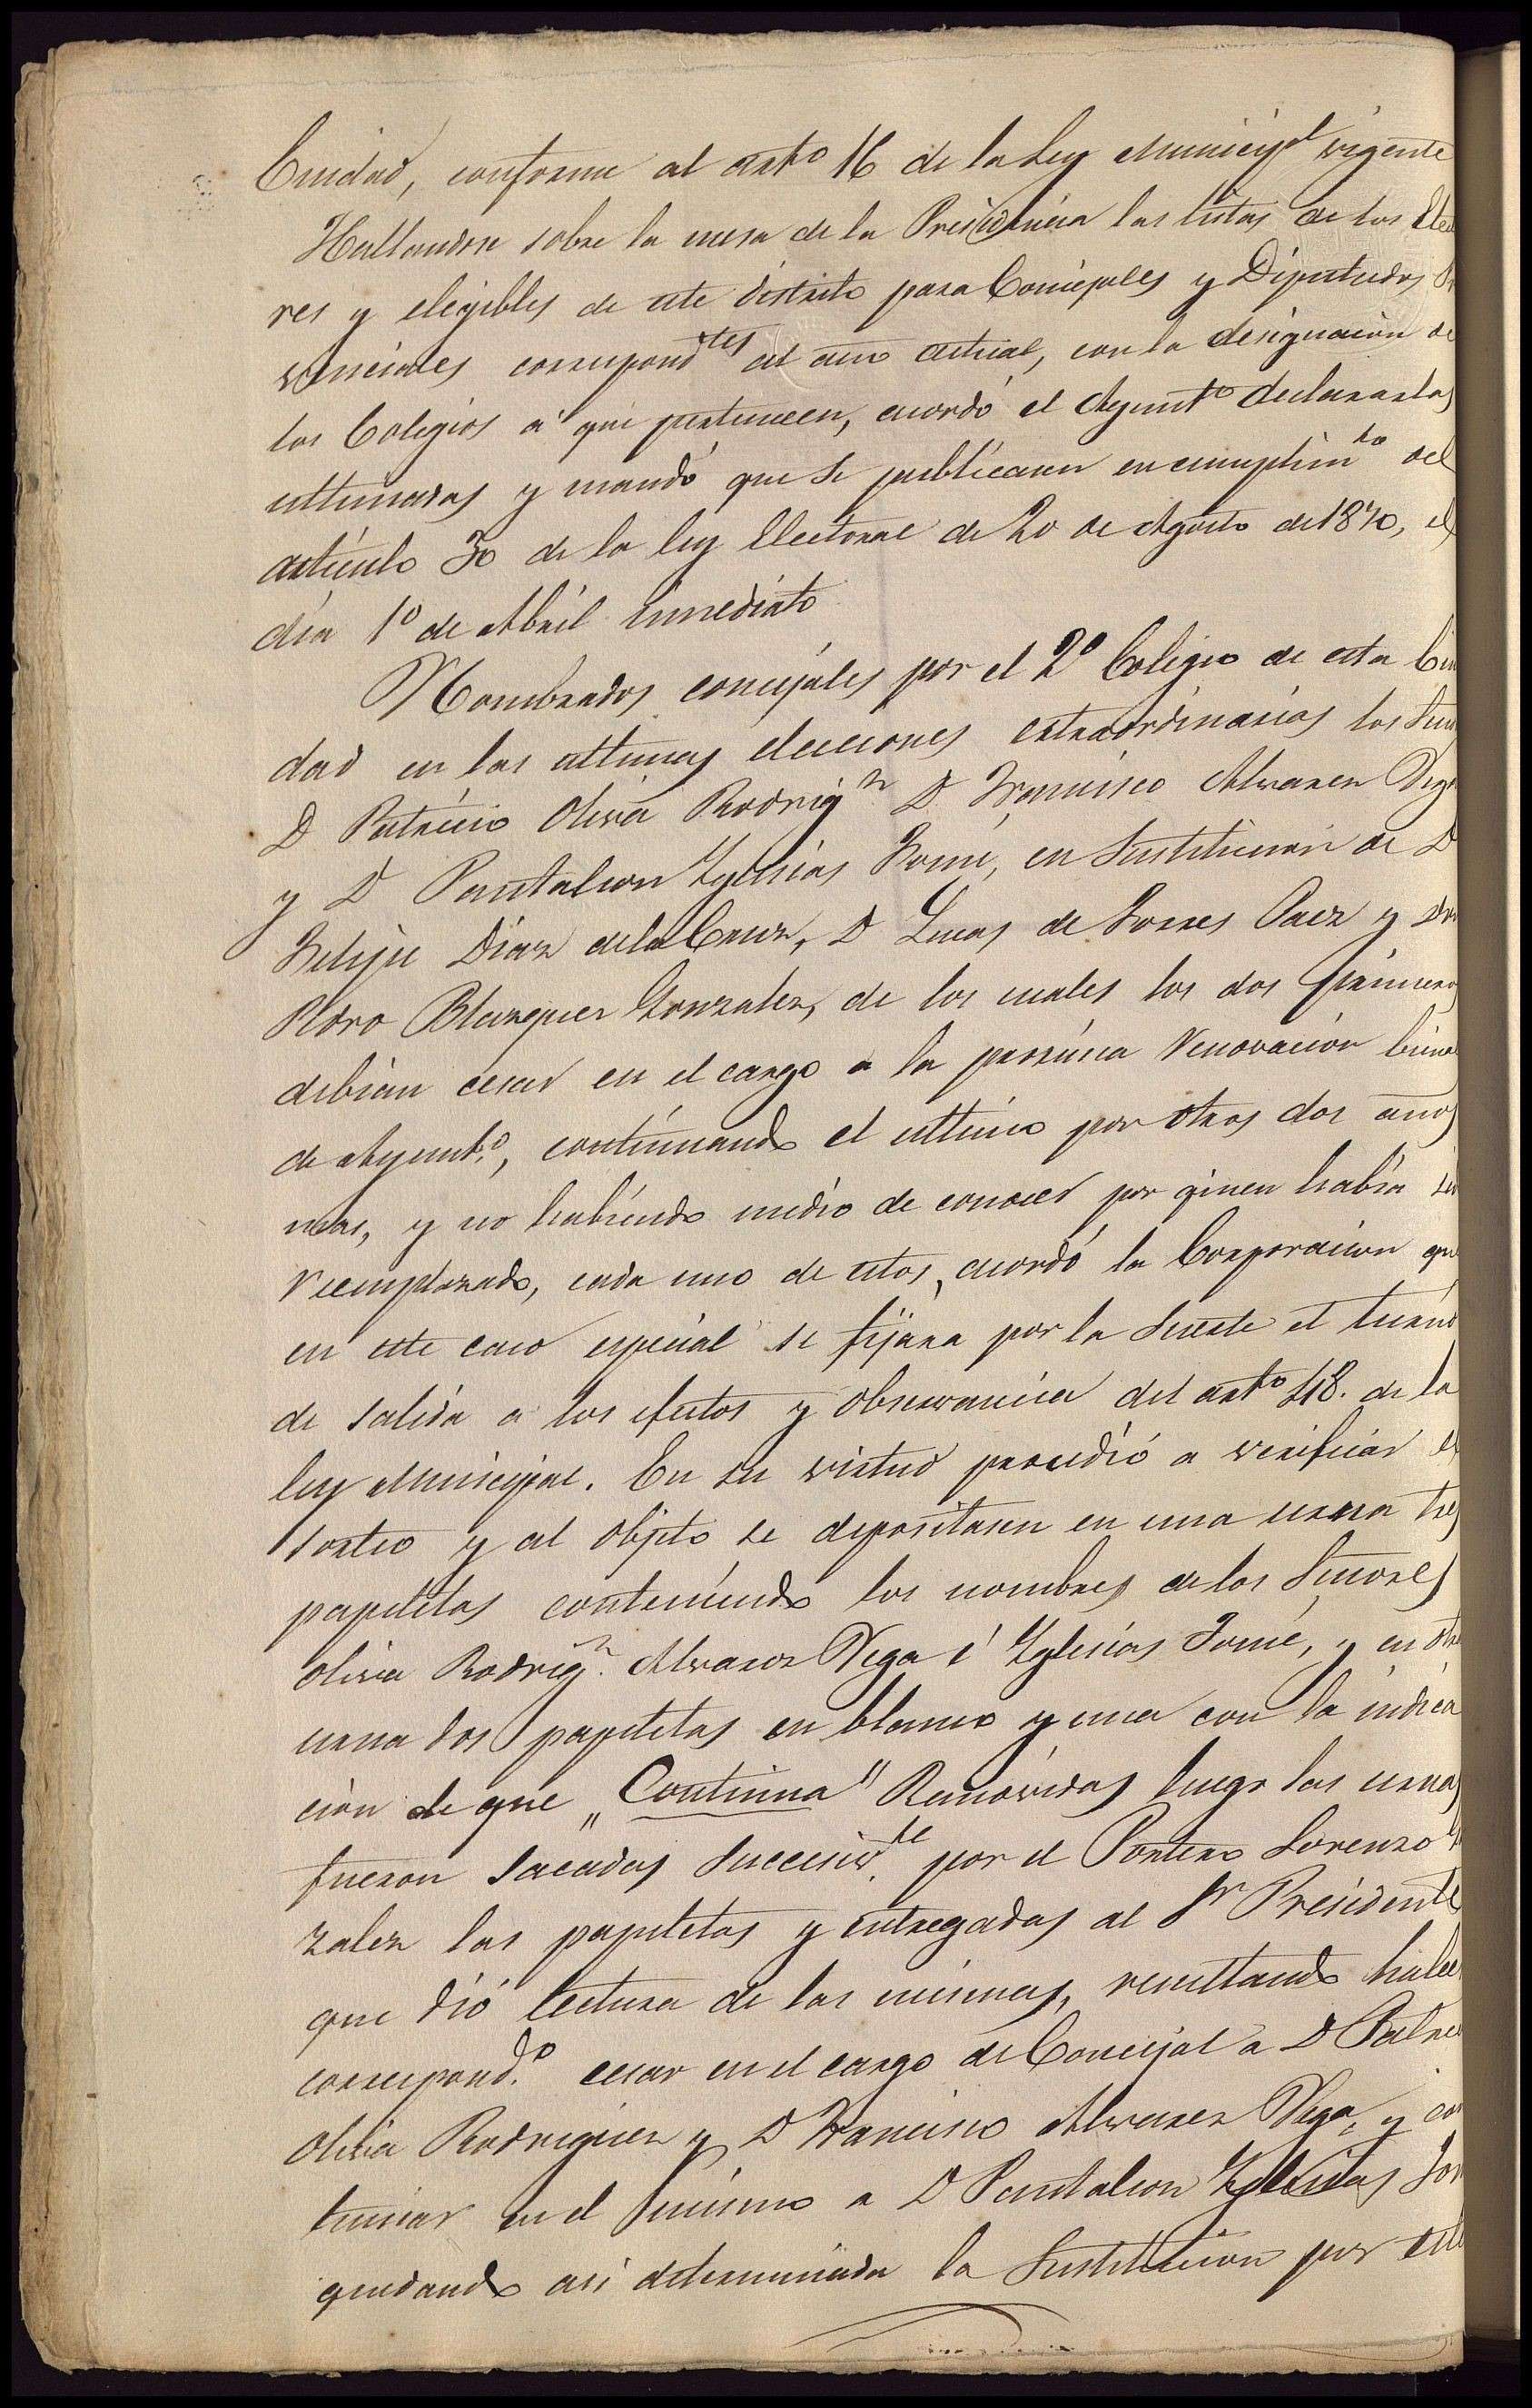 Ciudad, conforme al artº 16 de la Ley Municipl vigente
Hallandose sobre la mesa de la Presidencia las listas de los Elec
res y elegibles de este distrito para Concejales y Diputados
vinciales correspondtes al año actual, con la designacion de
los Colegios á que pertenecen, acordó el Ayuntº declararlas
ultimadas y mandó que se publicasen en cumplimto del
artículo 30 de la ley Electoral de 20 de Agosto de 1870, el
día 1º de Abril inmediato
Nombrados concejales por el 2º Colegio de esta Ciu
dad en las ultimas elecciones extraordinarias los
D Patricio Oliva Rodrigz D Francisco Alvarez Vega
y D Pantaleon Yglesias Tomé, en Sustitucion de D
Felipe Diaz de la Cruz, D Lucas de Torres Paez y Dn
Pedro Blazquez Gonzalez, de los cuales los dos primeros
debian cesar en el cargo a la prosima renovacion biena
de Ayuntº, continuando el ultimo por otros dos años
mas, y no habiendo medio de conocer por quien habia sido
reemplazado, cada uno de estos, acordó la Corporacion que
en este caso especial se fijara por la Suerte el turno
de salida a los efectos y observancia del artº 48. de la
ley Municipal. En su virtud procedió a verificar el
sorteo y al objeto se depositaron en una urna tres
papeletas conteniendo los nombres de los Señores
Oliva Rodrigz. Alvarez Vega é Yglesias Tomé, y en otra
urna dos papeletas en blanco y una con la indica
ción de que „Continua" Removidas luego las urnas
fueron sacadas Succesivte por el Portero Lorenzo
zalez las papeletas y entregadas al Sr Presidente
que dió lectura de las mismas, resultando haber
correspondº cesar en el cargo de Concejal a D Patric
Oliva Rodriguez y D Francisco Alvarez Vega, y con
tinuar en el mismo a D Pantaleon Yglesias Tom
quedando asi determinada la Sustitucion por este